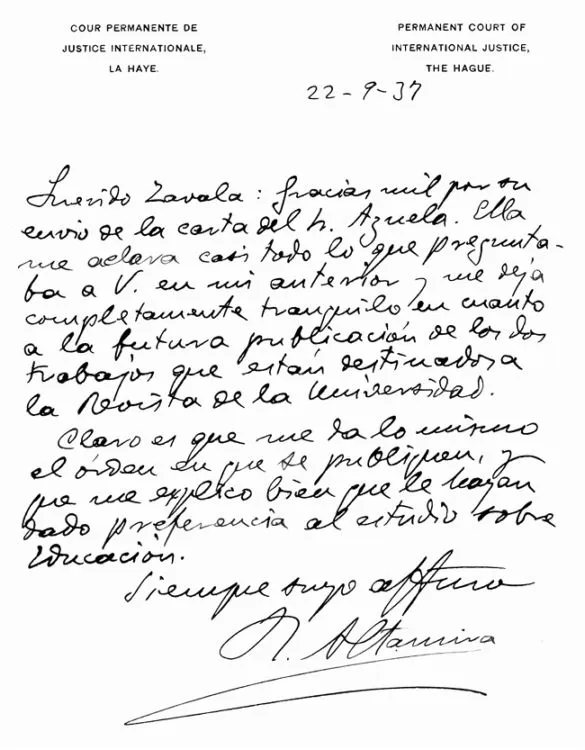 COUR PERMANENTE DE
JUSTICE INTERNATIONALE,
LA HAYE.
PERMANENT COURT OF
INTERNATIONAL JUSTICE,
THE HAGUE.
22-9-37
Querido Zavala: Gracias mil por su
envio de la carta del S. Azuela. Ella
me aclara casi todo lo que pregunta-
ba a V. en mi anterior y me deja
completamente tranquilo en cuanto
a la futura publicación de los dos
trabajos que están destinados a
la Revista de la Universidad.
Claro es que me da lo mismo
el órden en que se publiquen, y
que me explico bien que le hayan
dado preferencia al estudio sobre
Educación.
Siempre suyo affmo
R. Altamira